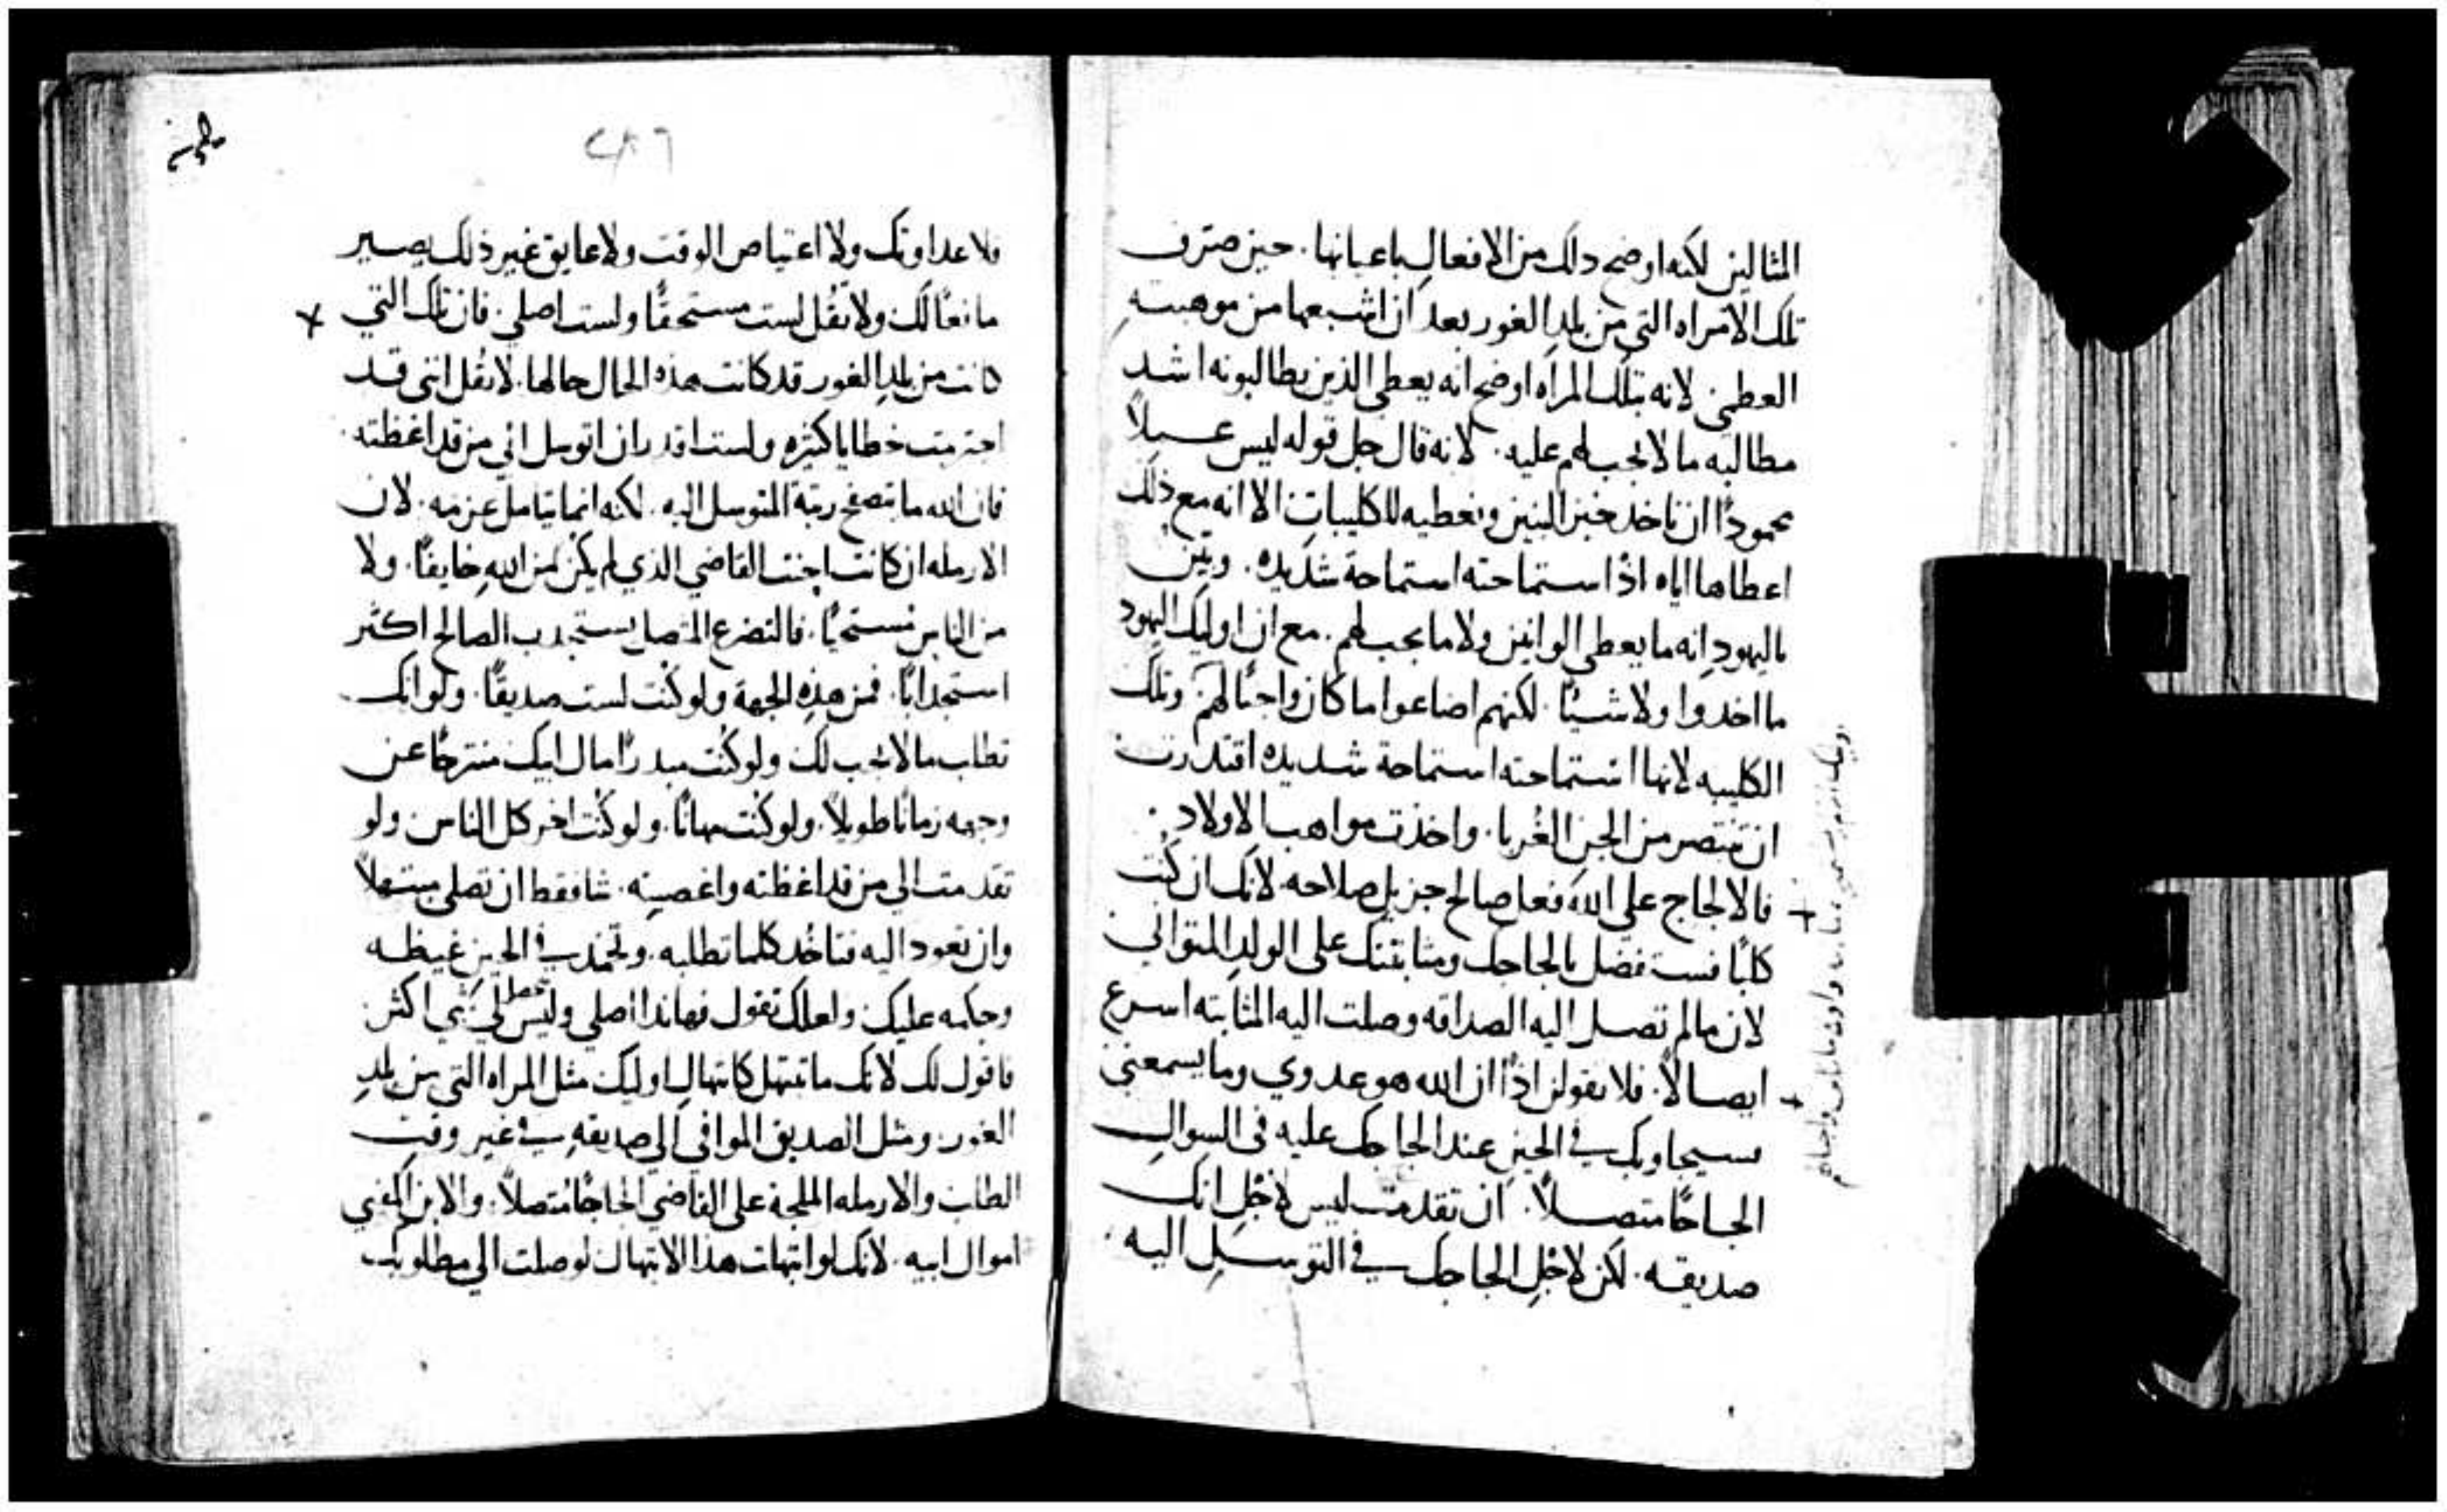 المثالين لكنه اوضح دلك من الافعال باعيانها. حين صرف
تلك الامراه التي من بلد الغور بعد ان اشبعها من موهبته
العظمى لانه بتلك المراه اوضح انه يعطي الذين يطالبونه اشد
مطالبه ما لا يجب لهم عليه. لانه قال جل قوله ليس عــملاً
محمودًا ان ناخذ خبز البنين ونعطيه للكليبات الا انه مع ذلك
اعطاها اياه اذ استماحته استماحة شديده. وبين
باليهود انه ما يعطي الوانين ولا ما يجب لهم. مع ان اوليك اليهود
ما اخدوا ولا شيئًا. لكنهم اضاعوا ما كان واجبًا لهم وتلك
الكليبه لانها استماحته استماحة شديده اقتدرت
ان تنتصر من الجن الغُربا. واخذت مواهب الاولاد.
فالالحاح على الله فعل صالح جزيل صلاحه لانك ان كُنت
كلبًا فستفضل بالحاحك ومثابتك على الولد المتواني
لان ما لم تصل اليه الصداقه وصلت اليه المثابته اسرع
ايصالاً. فلا تقولن اذًا ان الله هو عدوي وما يسمعني
سيجاوبك في الحين عند الحاحك عليه في السوال
الحاحًا متصلاً. ان تقدمت ليس لاجل انك
صديقه. لكن لاجل الحاحك في التوسل اليه
٢٨٦
فلا عداوتك ولا اعتياص الوقت ولا عايق غير ذلك يصير
مانعًا لك ولا تقُل لست مستحقًا ولست اصلي. فان تلك التي
كانت من بلد الغور قد كانت هذه الحال حالها. لا تقُل انني قد
اجترمت خطايا كثيره ولست اقدر ان اتوسل الي من قد اغظته.
فان الله ما يتصفح رتبة المتوسل اليه. لكنه انما يتامل عزمه. لان
الارمله ان كانت احنت القاضي الذي لم يكن من الله خايفًا. ولا
من الناس مُستحيًا. فالتضرع المتصل يستجدب الصالح اكثر
استجدابًا. فمن هذه الجهة ولو كُنت لست صديقًا. ولو انك
تطلب ما لا يجب لك ولو كُنت مبدرًا مال ابيك منتزحًا عن
وجهه زمانًا طويلاً. ولو كُنت مهانًا. ولو كُنت اخر كل الناس ولو
تقدمت الي من قد اغظته واغضبته. شا فقط ان تصلي مبتهلاً
وان تعود اليه فتاخُد كلما تطلبه. وتخمد في الحين غيظه
وحكمه عليك ولعلك تقول فهاندا اصلي وليس لي شي اكثر
فاقول لك لانك ما تبتهل كابتهال اوليك مثل المراه التي من بلد
الغور. ومثل الصديق الموافي الي صديقه في غير وقت
الطلب والارمله الملحة على القاضي الحاحًا متصلاً. والابن المفني
اموال ابيه. لانك لو ابتهلت هذا الابتهال لوصلت الي مطلوبك